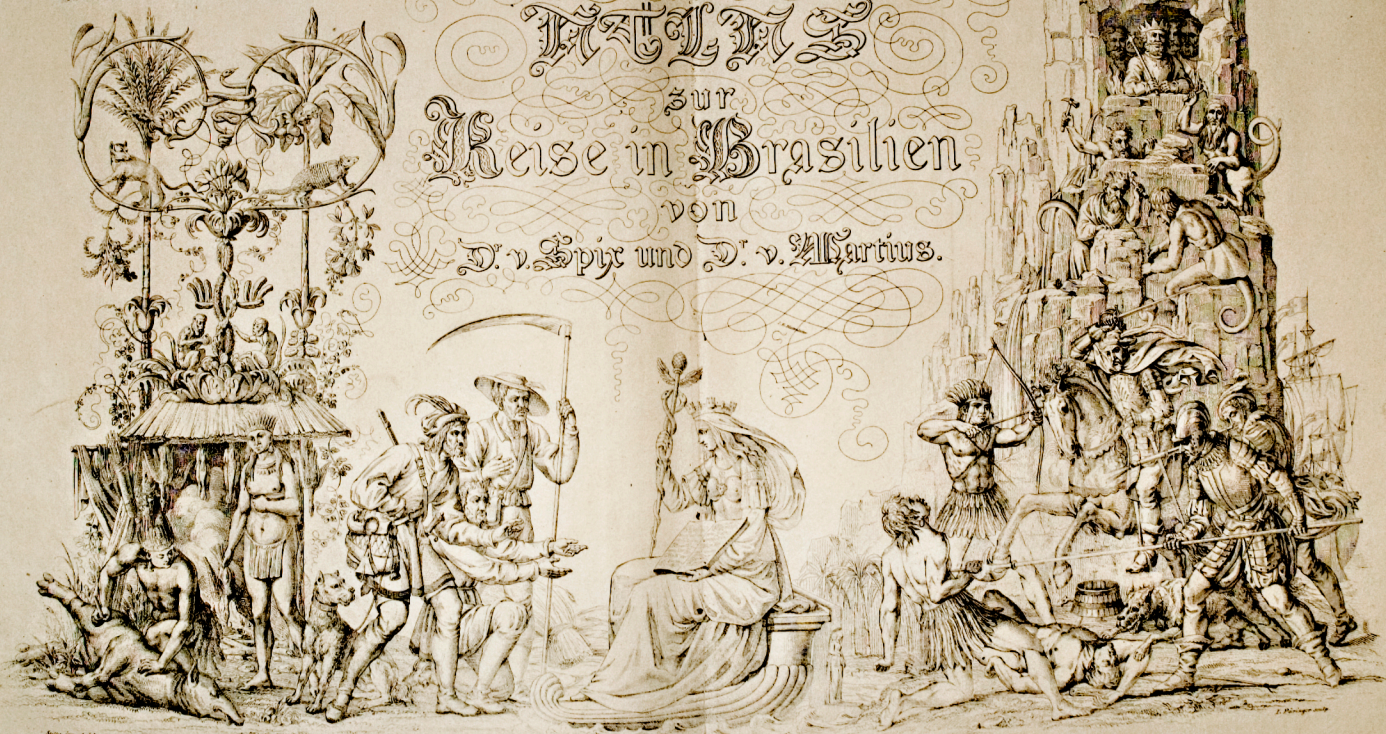 ATLAS
zur
Reise in Brasilien
von
Dr. v. Spix und Dr. v. Martius.